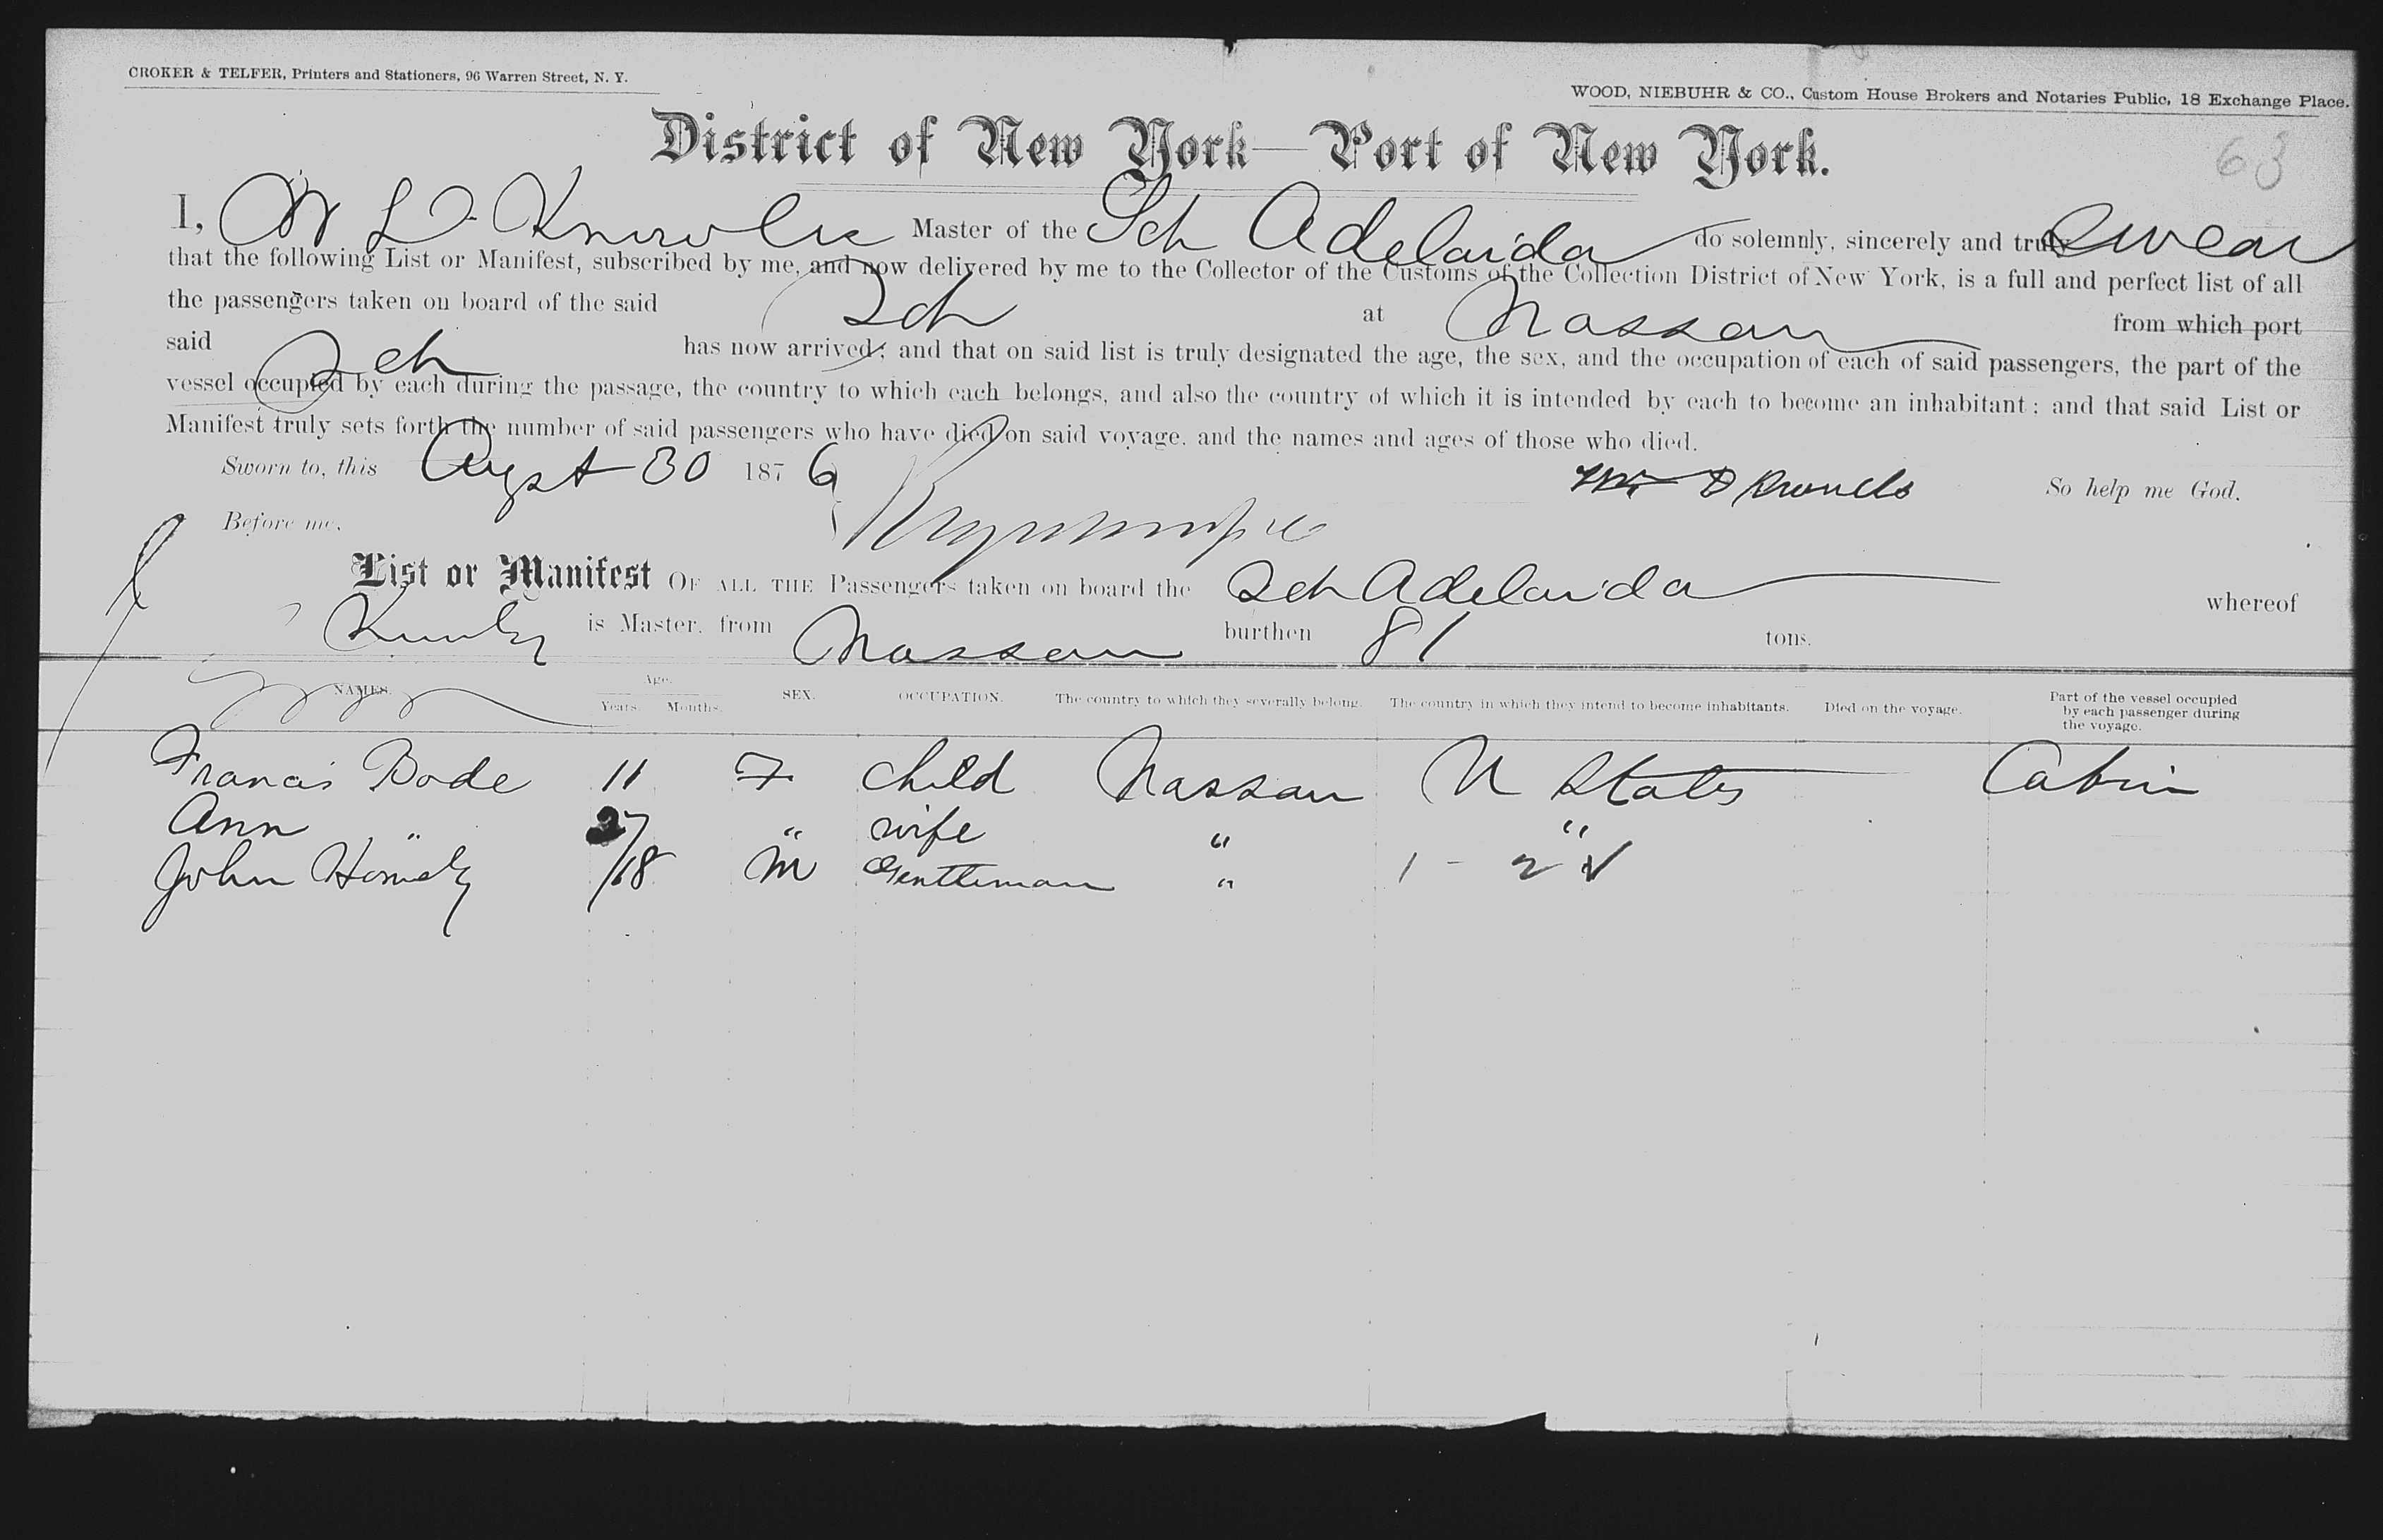 CROKER & TELFER, Printers and Stationers, 96 Warren Street, N. Y.
WOOD, NIEBUHR & CO., Custom House Brokers and Notaries Public, 18 Exchange Place.
District of New York—Port of New York.
63
I, Master of the Sch Adelaida do solemnly, sincerely and truly Swear
that the following List or Manifest, subscribed by me, and now delivered by me to the Collector of the Customs of the Collection District of New York, is a full and perfect list of all
the passengers taken on board of the said Sch at Nassau from which port
said Sch has now arrived; and that on said list is truly designated the age, the sex, and the occupation of each of said passengers, the part of the
vessel occupied by each during the passage, the country to which each belongs, and also the country of which it is intended by each to become an inhabitant; and that said List or
Manifest truly sets forth the number of said passengers who have died on said voyage, and the names and ages of those who died.
Sworn to, this Augst 30 1876 So help me God.
Before me,
List or Manifest OF ALL THE Passengers taken on board the Sch Adelaida whereof
is Master, from Nassau burthen 81 tons.
NAMES. Age. Years. Months. SEX. OCCUPATION. The country to which they severally belong. The country in which they intend to become inhabitants. Died on the voyage. Part of the vessel occupied by each passenger during the voyage.
Francis Bode 11 F child Nassau U States Cabin
Ann " 27 " wife " "
John 18 M Gentleman " 1 - 2